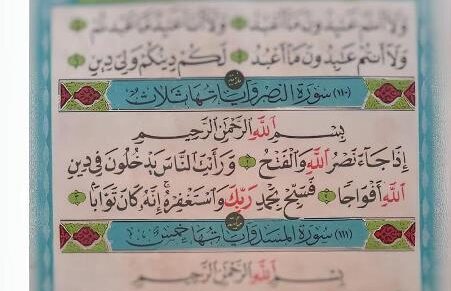 وَلَا أَنتُمْ عَابِدُونَ مَا أَعْبُدُ ۝ وَلَا أَنَا عَابِدٌ مَّا عَبَدتُّمْ ۝
وَلَا أَنتُمْ عَابِدُونَ مَا أَعْبُدُ ۝ لَكُمْ دِينُكُمْ وَلِيَ دِينِ ۝
(١١٠) سُورَةُ النَّصْرِ وَآيَاتُهَا ثَلَاثٌ
بِسْمِ اللَّهِ الرَّحْمَٰنِ الرَّحِيمِ
إِذَا جَاءَ نَصْرُ اللَّهِ وَالْفَتْحُ ۝١ وَرَأَيْتَ النَّاسَ يَدْخُلُونَ فِي دِينِ
اللَّهِ أَفْوَاجًا ۝٢ فَسَبِّحْ بِحَمْدِ رَبِّكَ وَاسْتَغْفِرْهُ إِنَّهُ كَانَ تَوَّابًا ۝٣
(١١١) سُورَةُ الْمَسَدِ وَآيَاتُهَا خَمْسٌ
بِسْمِ اللَّهِ الرَّحْمَٰنِ الرَّحِيمِ